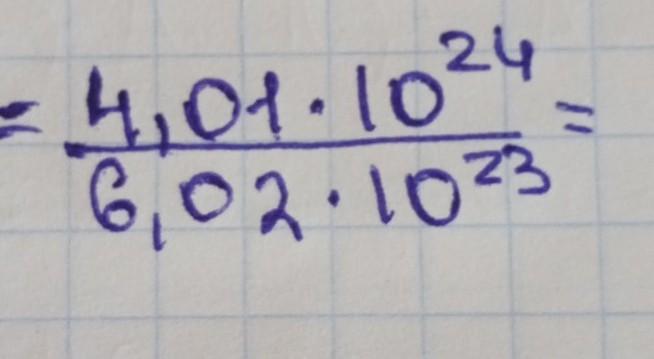 = 4,01 · 10²⁴
6,02 · 10²³ =